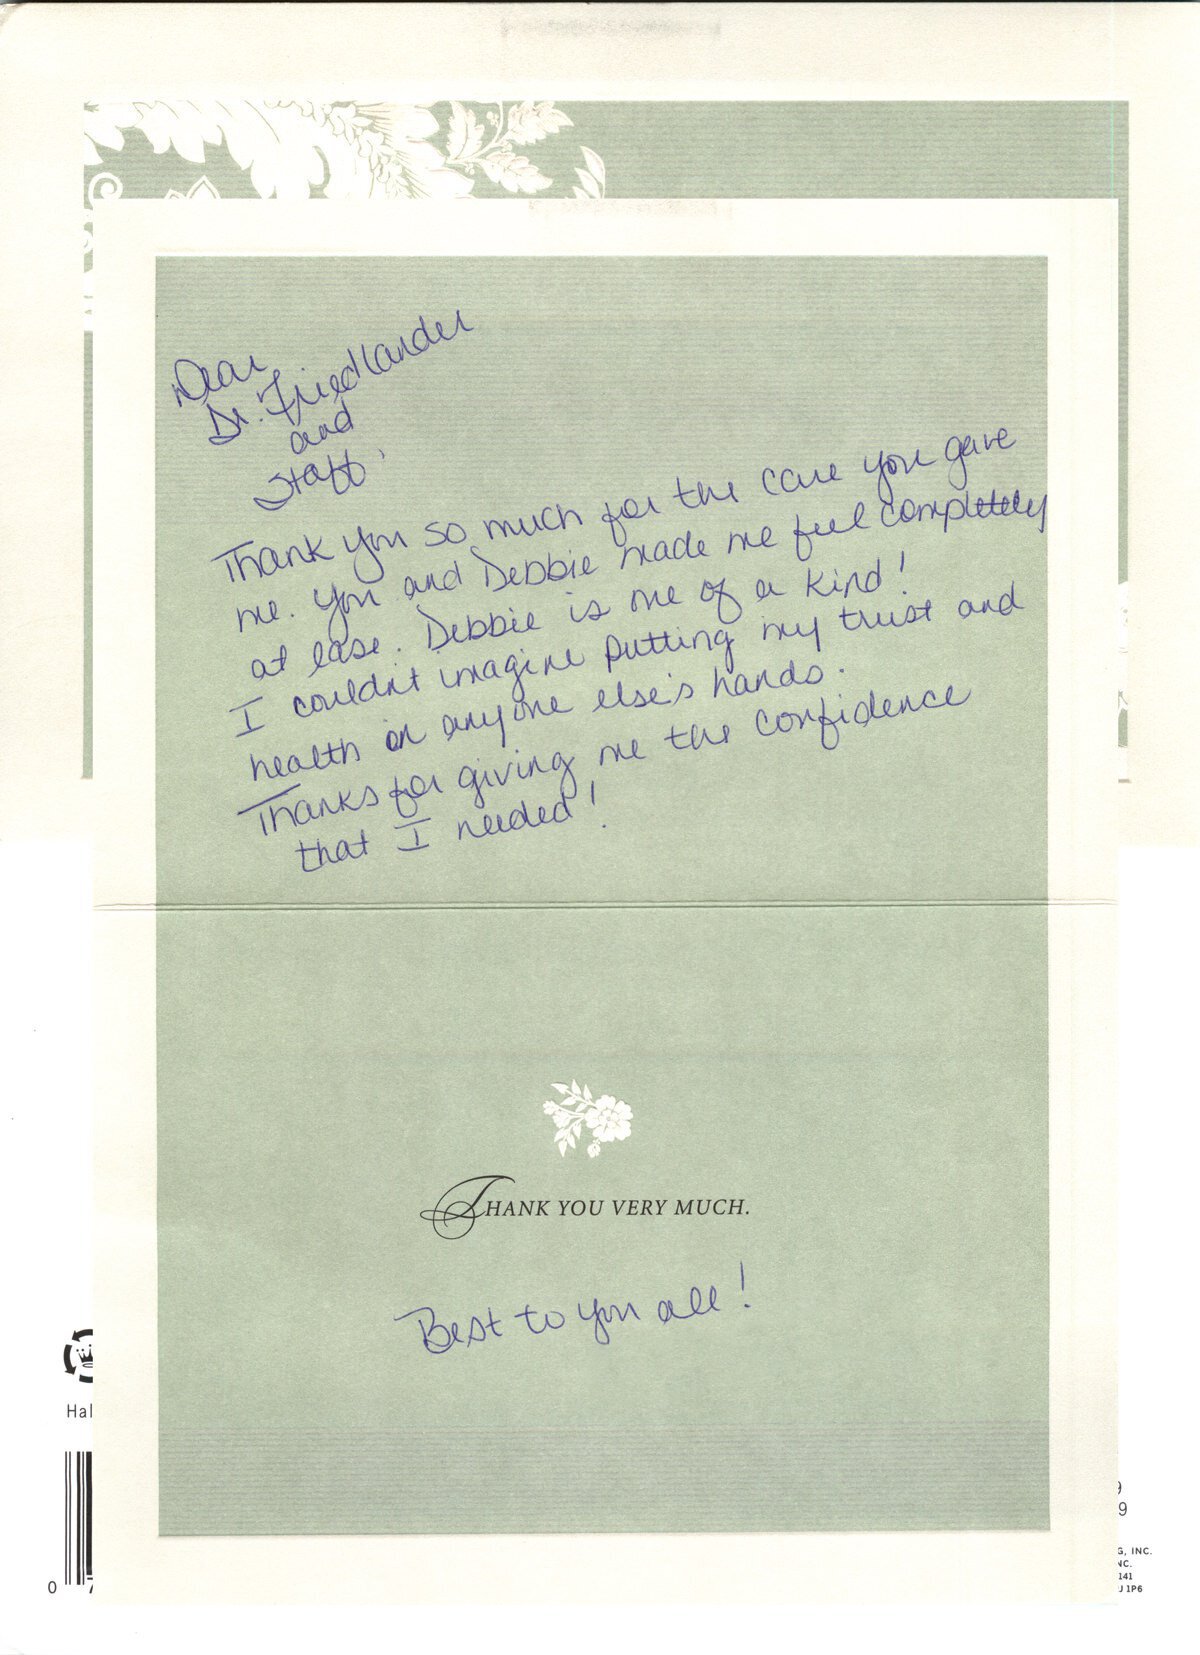 Dear
Dr. Friedlander
and
Staff,
Thank you so much for the care you gave
me. You and Debbie made me feel completely
at ease. Debbie is one of a kind!
I couldn't imagine putting my trust and
health in anyone else's hands.
Thanks for giving me the confidence
that I needed!
THANK YOU VERY MUCH.
Best to you all!
Hal
9
9
G, INC.
NC.
141
J 1P6
0 7